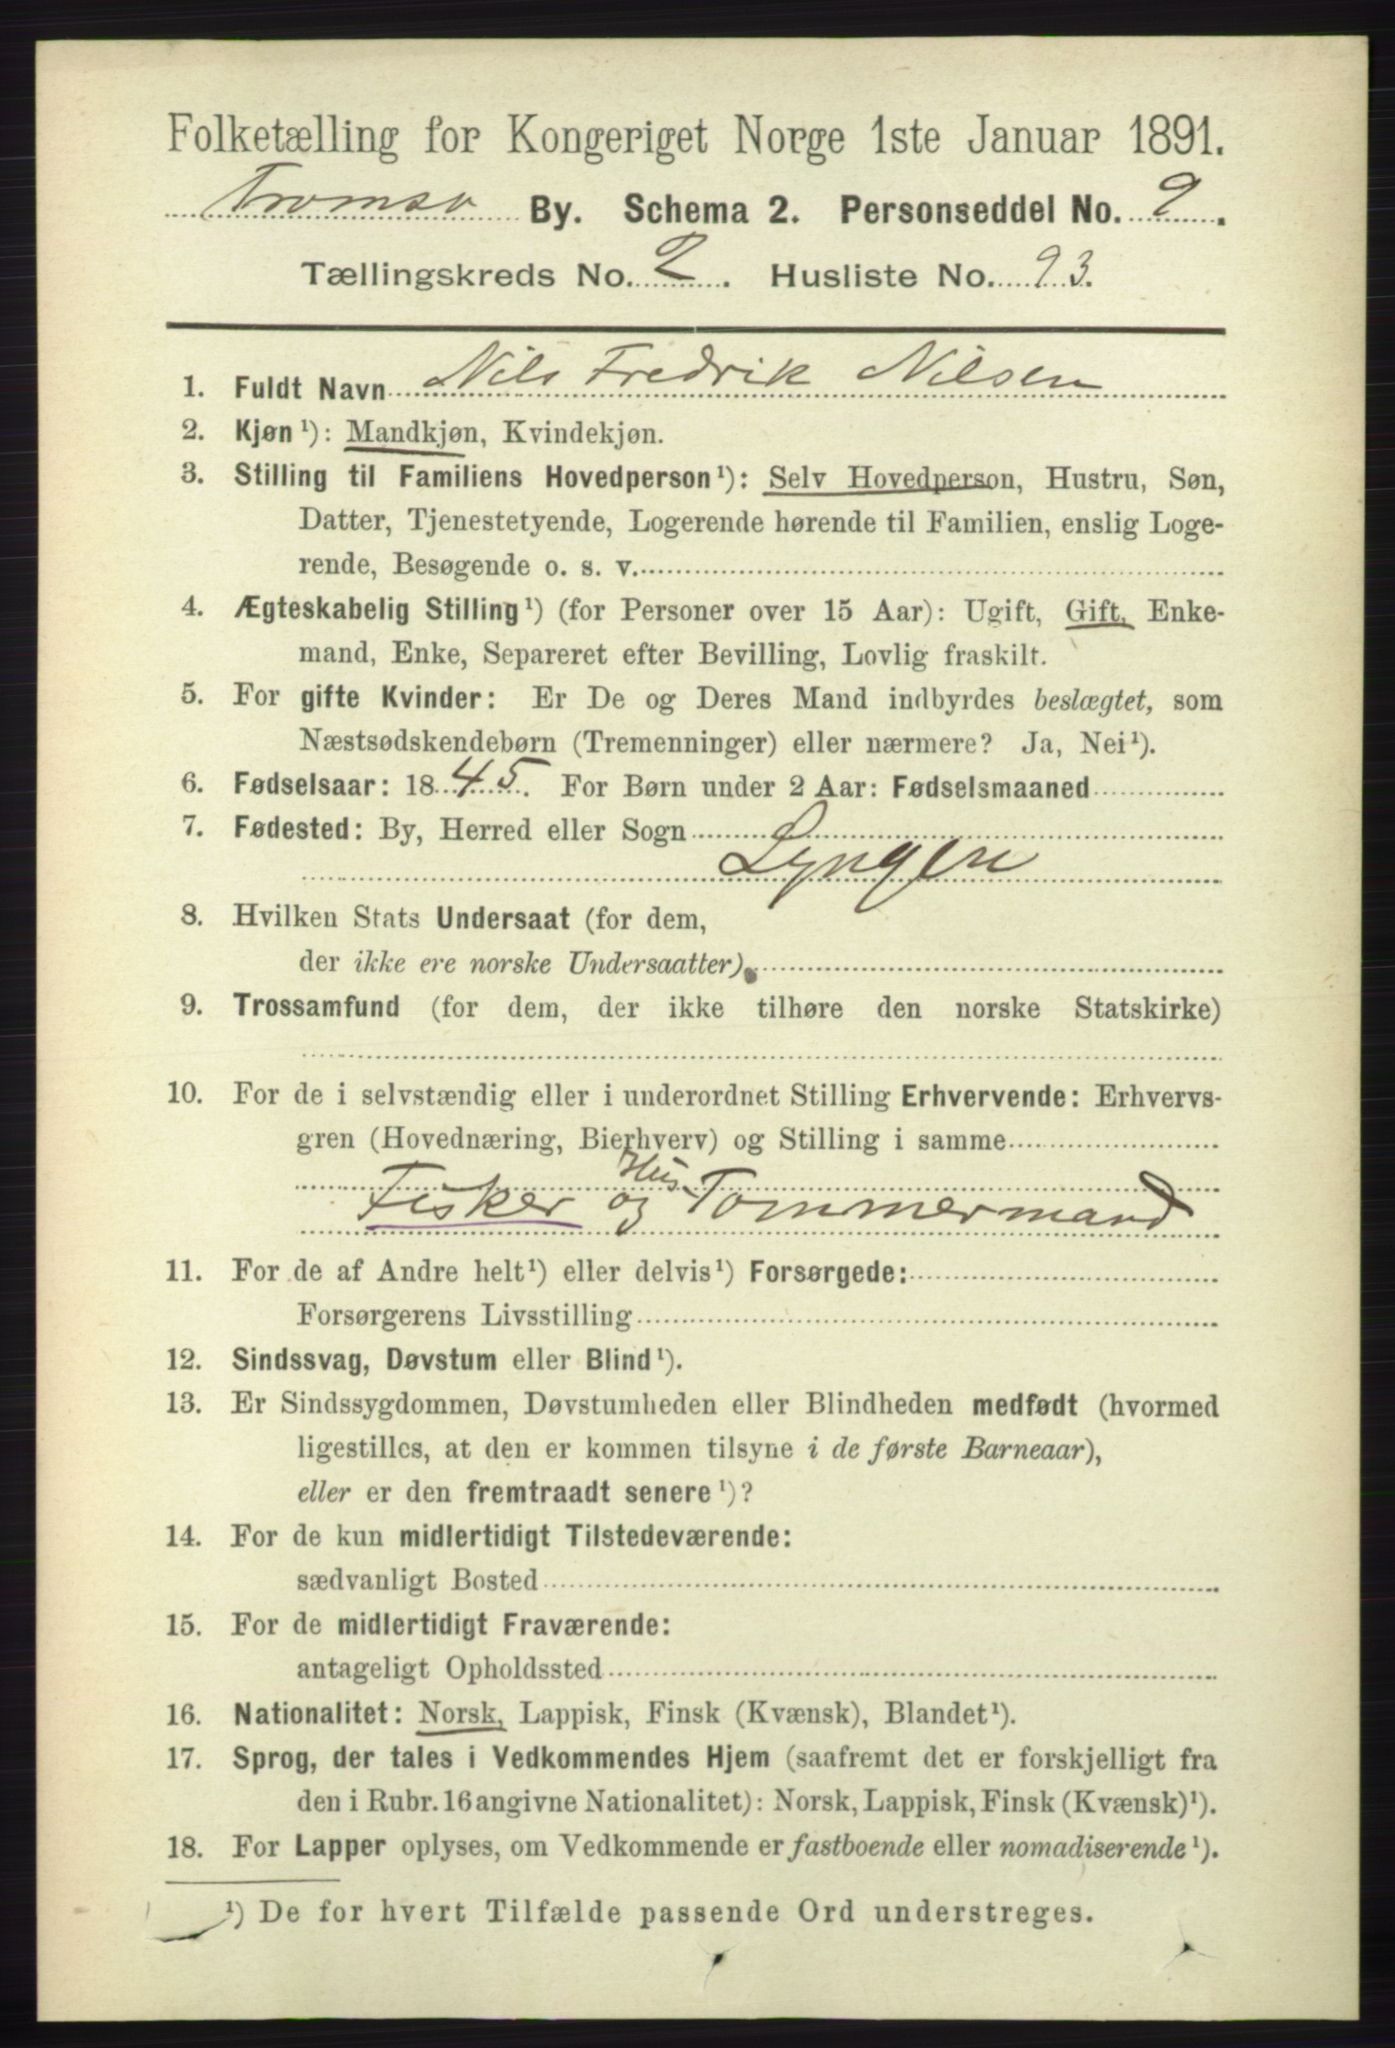 Folketælling for Kongeriget Norge 1ste Januar 1891.
Tromsø By. Schema 2. Personseddel No. 9.
Tællingskreds No. 2. Husliste No. 93.
1. Fuldt Navn Nils Fredrik Nilsen
2. Kjøn¹): Mandkjøn, Kvindekjøn.
3. Stilling til Familiens Hovedperson¹): Selv Hovedperson, Hustru, Søn,
Datter, Tjenestetyende, Logerende hørende til Familien, enslig Loge-
rende, Besøgende o. s. v.
4. Ægteskabelig Stilling¹) (for Personer over 15 Aar): Ugift, Gift, Enke-
mand, Enke, Separeret efter Bevilling, Lovlig fraskilt.
5. For gifte Kvinder: Er De og Deres Mand indbyrdes beslægtet, som
Næstsødskendebørn (Tremenninger) eller nærmere? Ja, Nei¹).
6. Fødselsaar: 1845. For Børn under 2 Aar: Fødselsmaaned
7. Fødested: By, Herred eller Sogn
Lyngen
8. Hvilken Stats Undersaat (for dem,
der ikke ere norske Undersaatter)
9. Trossamfund (for dem, der ikke tilhøre den norske Statskirke)
10. For de i selvstændig eller i underordnet Stilling Erhvervende: Erhvervs-
gren (Hovednæring, Bierhverv) og Stilling i samme
Hus
Fisker og Tommermand
11. For de af Andre helt¹) eller delvis¹) Forsørgede:
Forsørgerens Livsstilling
12. Sindssvag, Døvstum eller Blind¹).
13. Er Sindssygdommen, Døvstumheden eller Blindheden medfødt (hvormed
ligestilles, at den er kommen tilsyne i de første Barneaar),
eller er den fremtraadt senere¹)?
14. For de kun midlertidigt Tilstedeværende:
sædvanligt Bosted
15. For de midlertidigt Fraværende:
antageligt Opholdssted
16. Nationalitet: Norsk, Lappisk, Finsk (Kvænsk), Blandet¹).
17. Sprog, der tales i Vedkommendes Hjem (saafremt det er forskjelligt fra
den i Rubr. 16 angivne Nationalitet): Norsk, Lappisk, Finsk (Kvænsk)¹).
18. For Lapper oplyses, om Vedkommende er fastboende eller nomadiserende¹).
¹) De for hvert Tilfælde passende Ord understreges.